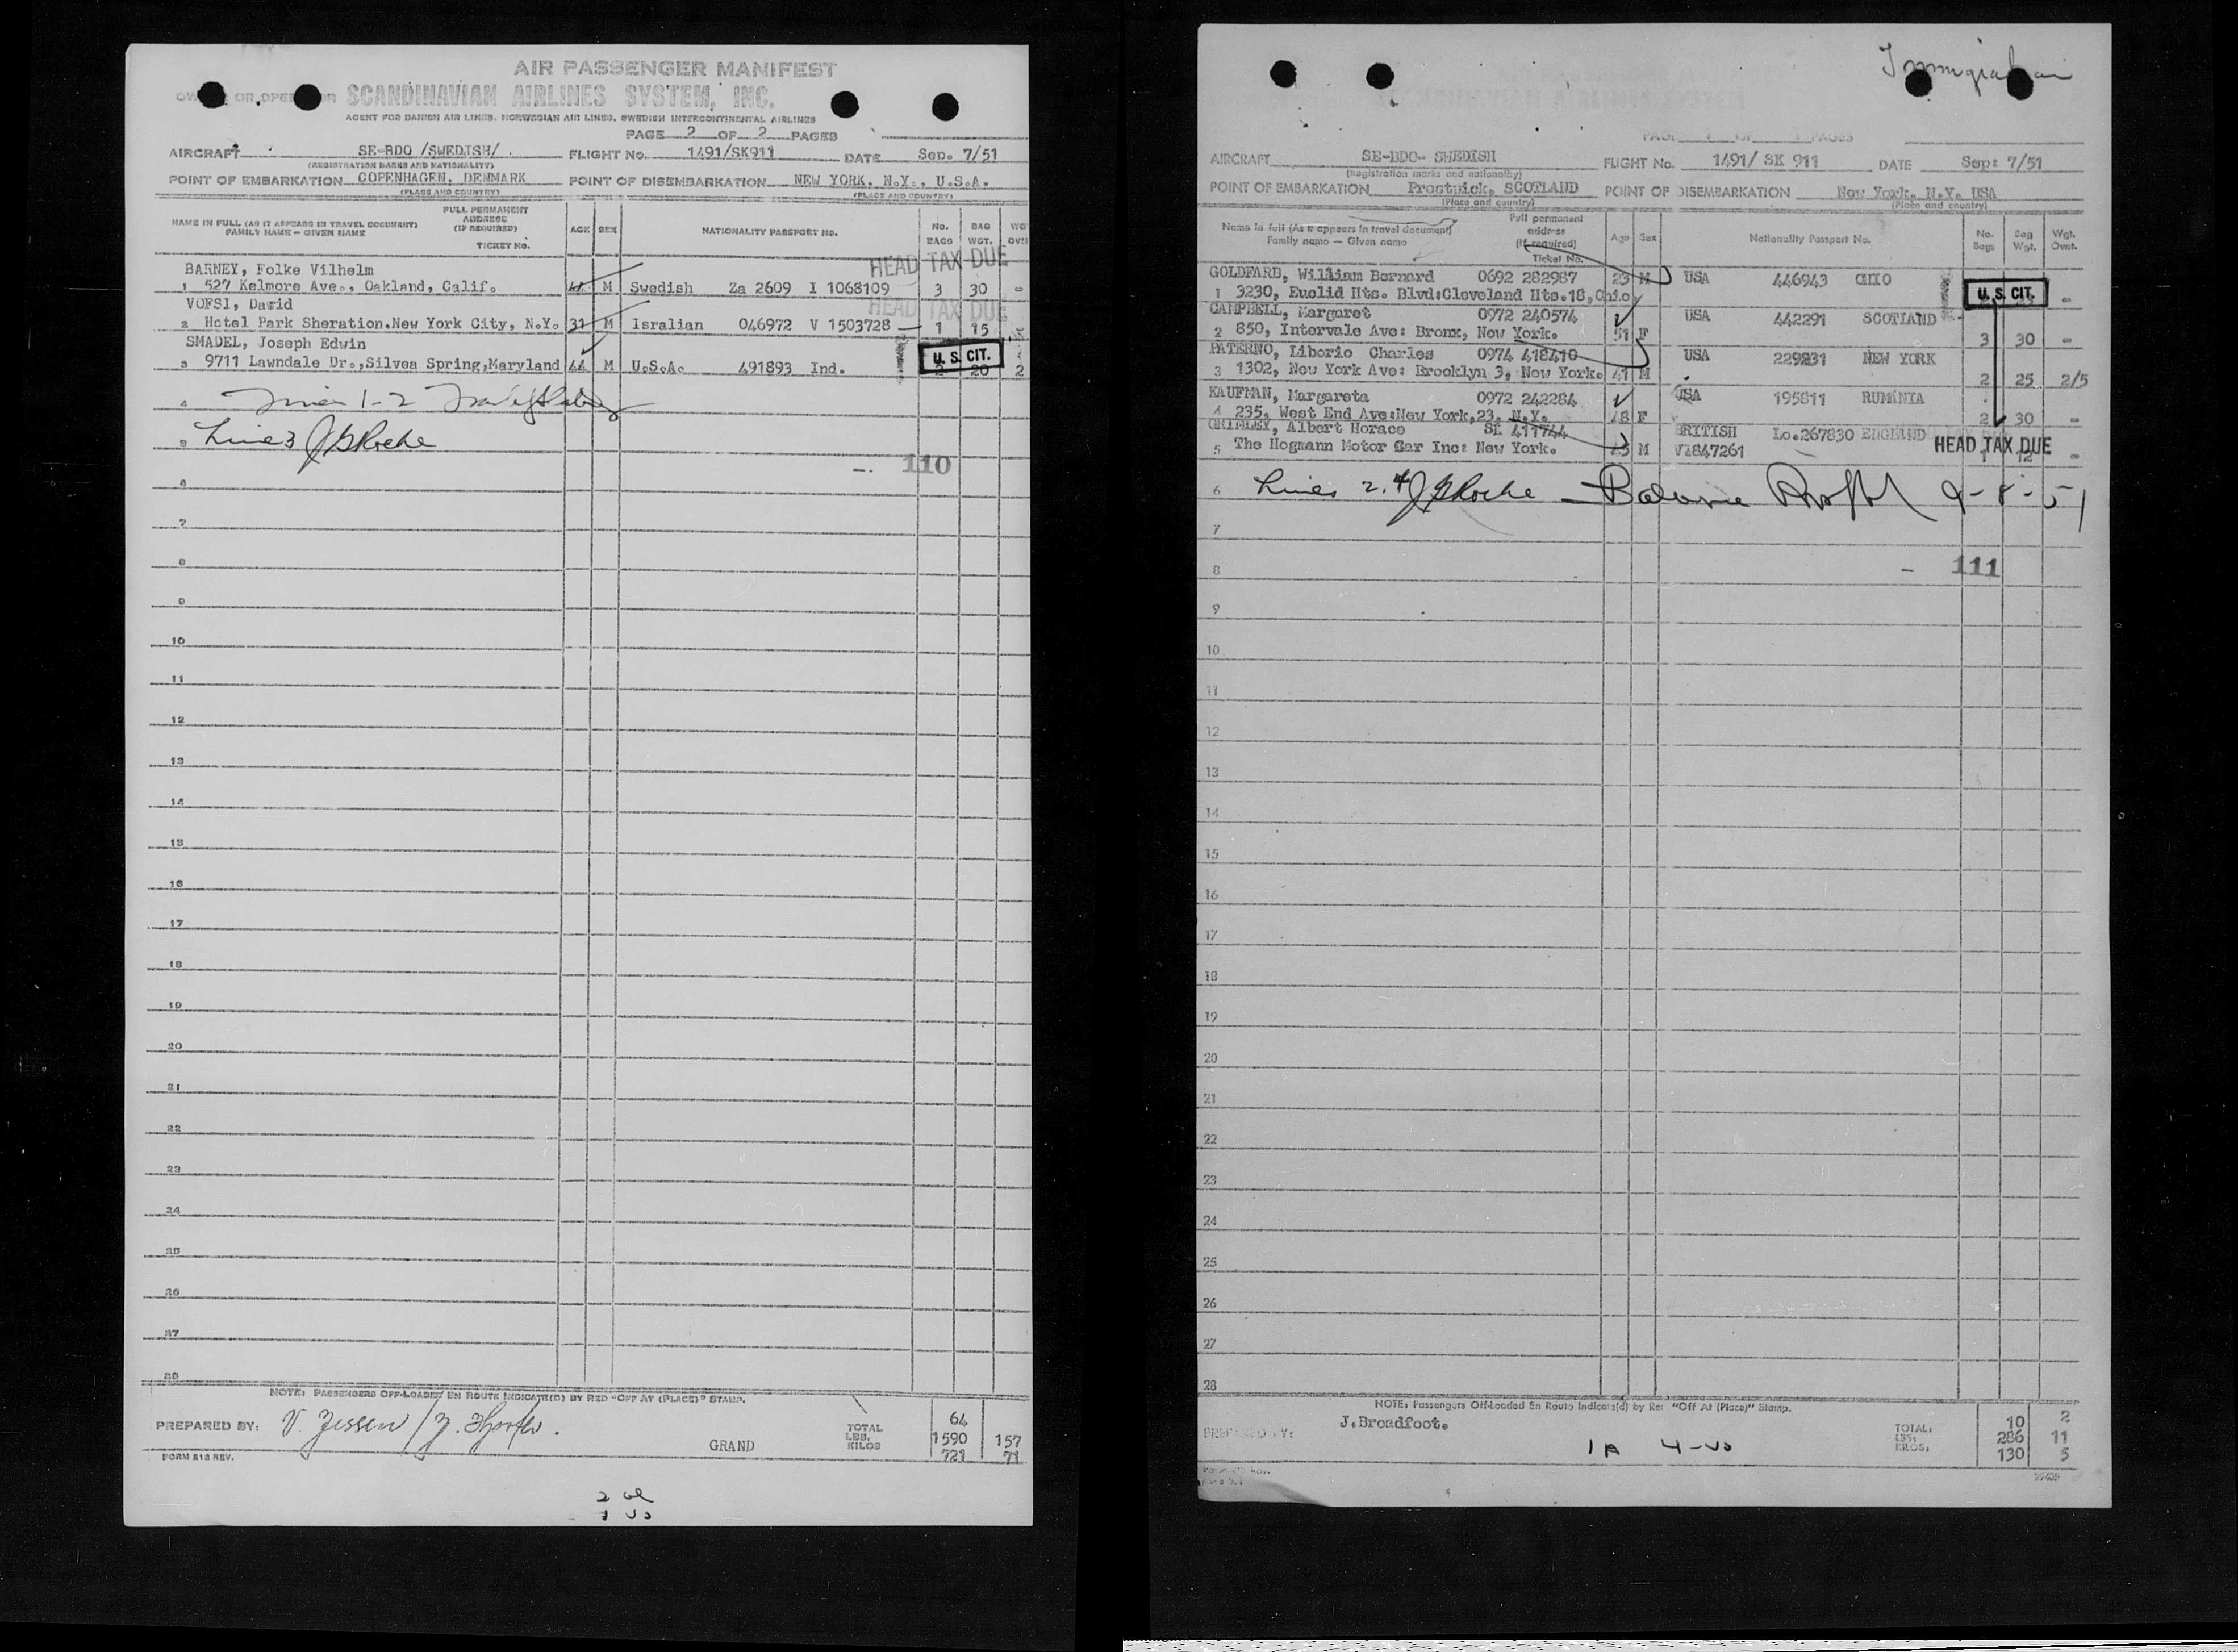 AIR PASSENGER MANIFEST
OR OPERATOR SCANDINAVIAN AIRLINES SYSTEM, INC.
AGENT FOR DANISH AIR LINES, NORWEGIAN AIR LINES, SWEDISH INTERCONTINENTAL AIRLINES
PAGE 2 OF 2 PAGES
AIRCRAFT SE-BDO /SWEDISH/ FLIGHT No. 1491/SK911 DATE Sep. 7/51
(REGISTRATION MARKS AND NATIONALITY)
POINT OF EMBARKATION COPENHAGEN, DENMARK POINT OF DISEMBARKATION NEW YORK, N.Y., U.S.A.
(PLACE AND COUNTRY) (PLACE AND COUNTRY)
NAME IN FULL (AS IT APPEARS IN TRAVEL DOCUMENT) FAMILY NAME - GIVEN NAME
FULL PERMANENT ADDRESS (IF REQUIRED) TICKET No.
AGE SEX NATIONALITY PASSPORT NO. No. BAGS BAG WGT.
HEAD TAX DUE
BARNEY, Folke Vilhelm
1 527 Kelmore Ave., Oakland, Calif. 44 M Swedish Za 2609 I 1068109 3 30 -
HEAD TAX DUE
VOFSI, David
2 Hotel Park Sheration.New York City, N.Y. 31 M Isralian 046972 V 1503728 1 15
SMADEL, Joseph Edwin
U.S. CIT.
3 9711 Lawndale Dr.,Silvea Spring,Maryland 44 M U.S.A. 491893 Ind. 2 20 2
4
5 Line 3 J G Roche
110
6
7
8
9
10
11
12
13
14
15
16
17
18
19
20
21
22
23
24
25
26
27
28
NOTE: PASSENGERS OFF-LOADED EN ROUTE INDICATE(D) BY RED "OFF AT (PLACE)" STAMP.
PREPARED BY: V. Jessen
TOTAL 64
LBS. 1590 157
GRAND KILOS 721 71
FORM 818 REV.
Immigration
PAGE 1 OF 1 PAGES
AIRCRAFT SE-BDO- SWEDISH FLIGHT No. 1491/ SK 911 DATE Sep: 7/51
(Registration marks and nationality)
POINT OF EMBARKATION Prestwick, SCOTLAND POINT OF DISEMBARKATION New York, N.Y. USA
(Place and country) (Place and country)
Name in full (As it appears in travel document) Family name — Given name
Full permanent address (If required) Ticket No.
Age Sex Nationality Passport No. No. Bags Bag Wgt. Wgt. Ovnt.
GOLDFARB, William Bernard 0692 282987 23 M USA 446943 OHIO
U.S. CIT.
1 3230, Euclid Hts. Blvd:Cleveland Hts.18,Ohio -
CAMPBELL, Margaret 0972 240574 USA 442291 SCOTLAND
2 850, Intervale Ave: Bronx, New York. 51 F 3 30 -
PATERNO, Liborio Charles 0974 418410 USA 229831 NEW YORK
3 1302, New York Ave: Brooklyn 3, New York. 41 M 2 25 2/5
KAUFMAN, Margareta 0972 242284 USA 195811 RUMINIA
4 235, West End Ave:New York,23. N.Y. 48 F 2 30 -
GRIMLEY, Albert Horace SK 411744 BRITISH Lo.267830 ENGLAND
HEAD TAX DUE
5 The Hogmann Motor Car Inc: New York. 43 M V1847261 1 12 -
6 Lines 2.4 J G Roche 9-8-51
7
111
8
9
10
11
12
13
14
15
16
17
18
19
20
21
22
23
24
25
26
27
28
NOTE: Passengers Off-Loaded En Route Indicate(d) by Red "Off At (Place)" Stamp.
PREPARED BY: J.Broadfoot.
1A 4-US
TOTAL: 10 2
LBS: 286 11
KILOS: 130 5